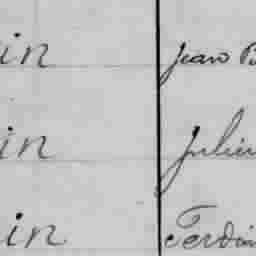 in Jean B
in Julien
in Ferdin